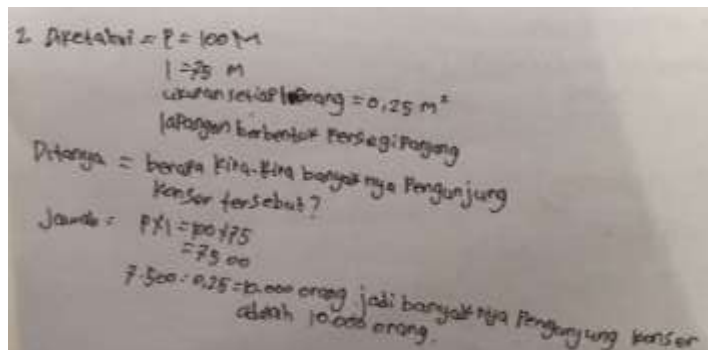 2. Diketahui = P = 100 M
l = 75 m
ukuran setiap 1 orang = 0,25 m²
lapangan berbentuk persegi panjang
Ditanya = berapa kira-kira banyak nya Pengunjung
Konser tersebut?
Jawab = P x l = 100 x 75
= 7500
7.500 : 0,25 = 10.000 orang jadi banyak nya Pengunjung konser
adalah 10.000 orang.